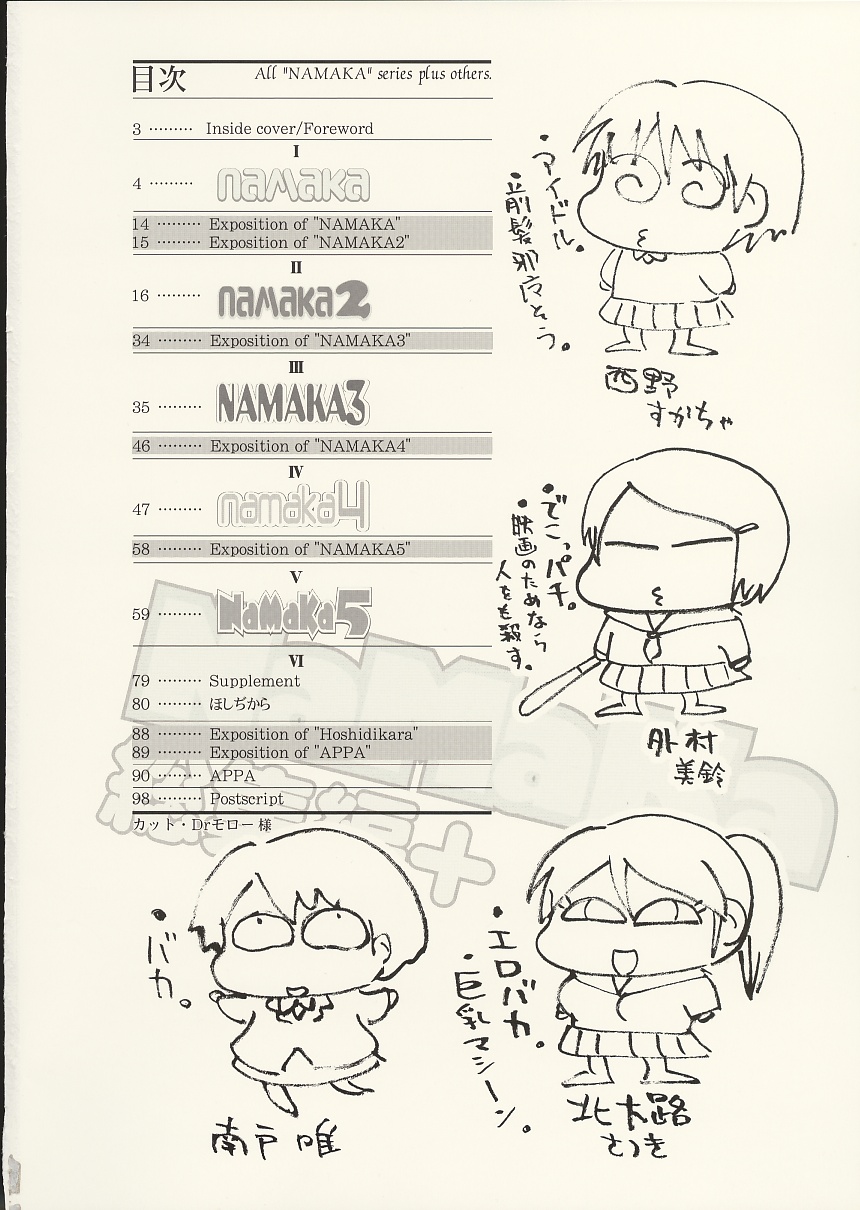 目次
All "NAMAKA" series plus others.
3 ……… Inside cover/Foreword
I
4 ……… namaka
14 ……… Exposition of "NAMAKA"
15 ……… Exposition of "NAMAKA2"
II
16 ……… namaka2
34 ……… Exposition of "NAMAKA3"
III
35 ……… NAMAKA3
46 ……… Exposition of "NAMAKA4"
IV
47 ……… namaka4
58 ……… Exposition of "NAMAKA5"
V
59 ……… NaMaKa5
VI
79 ……… Supplement
80 ……… ほしぢから
88 ……… Exposition of "Hoshidikara"
89 ……… Exposition of "APPA"
90 ……… APPA
98 ……… Postscript
カット・Drモロー様
NaMaKa
総集編+
・アイドル。
・前髪邪广そう。
西野
すかちゃ
・でこっパチ。
・映画のためなら
人をも殺す。
外村
美鈴
・バカ。
南戸唯
・エロバカ。
・巨乳マシーン。
北大路
さつき